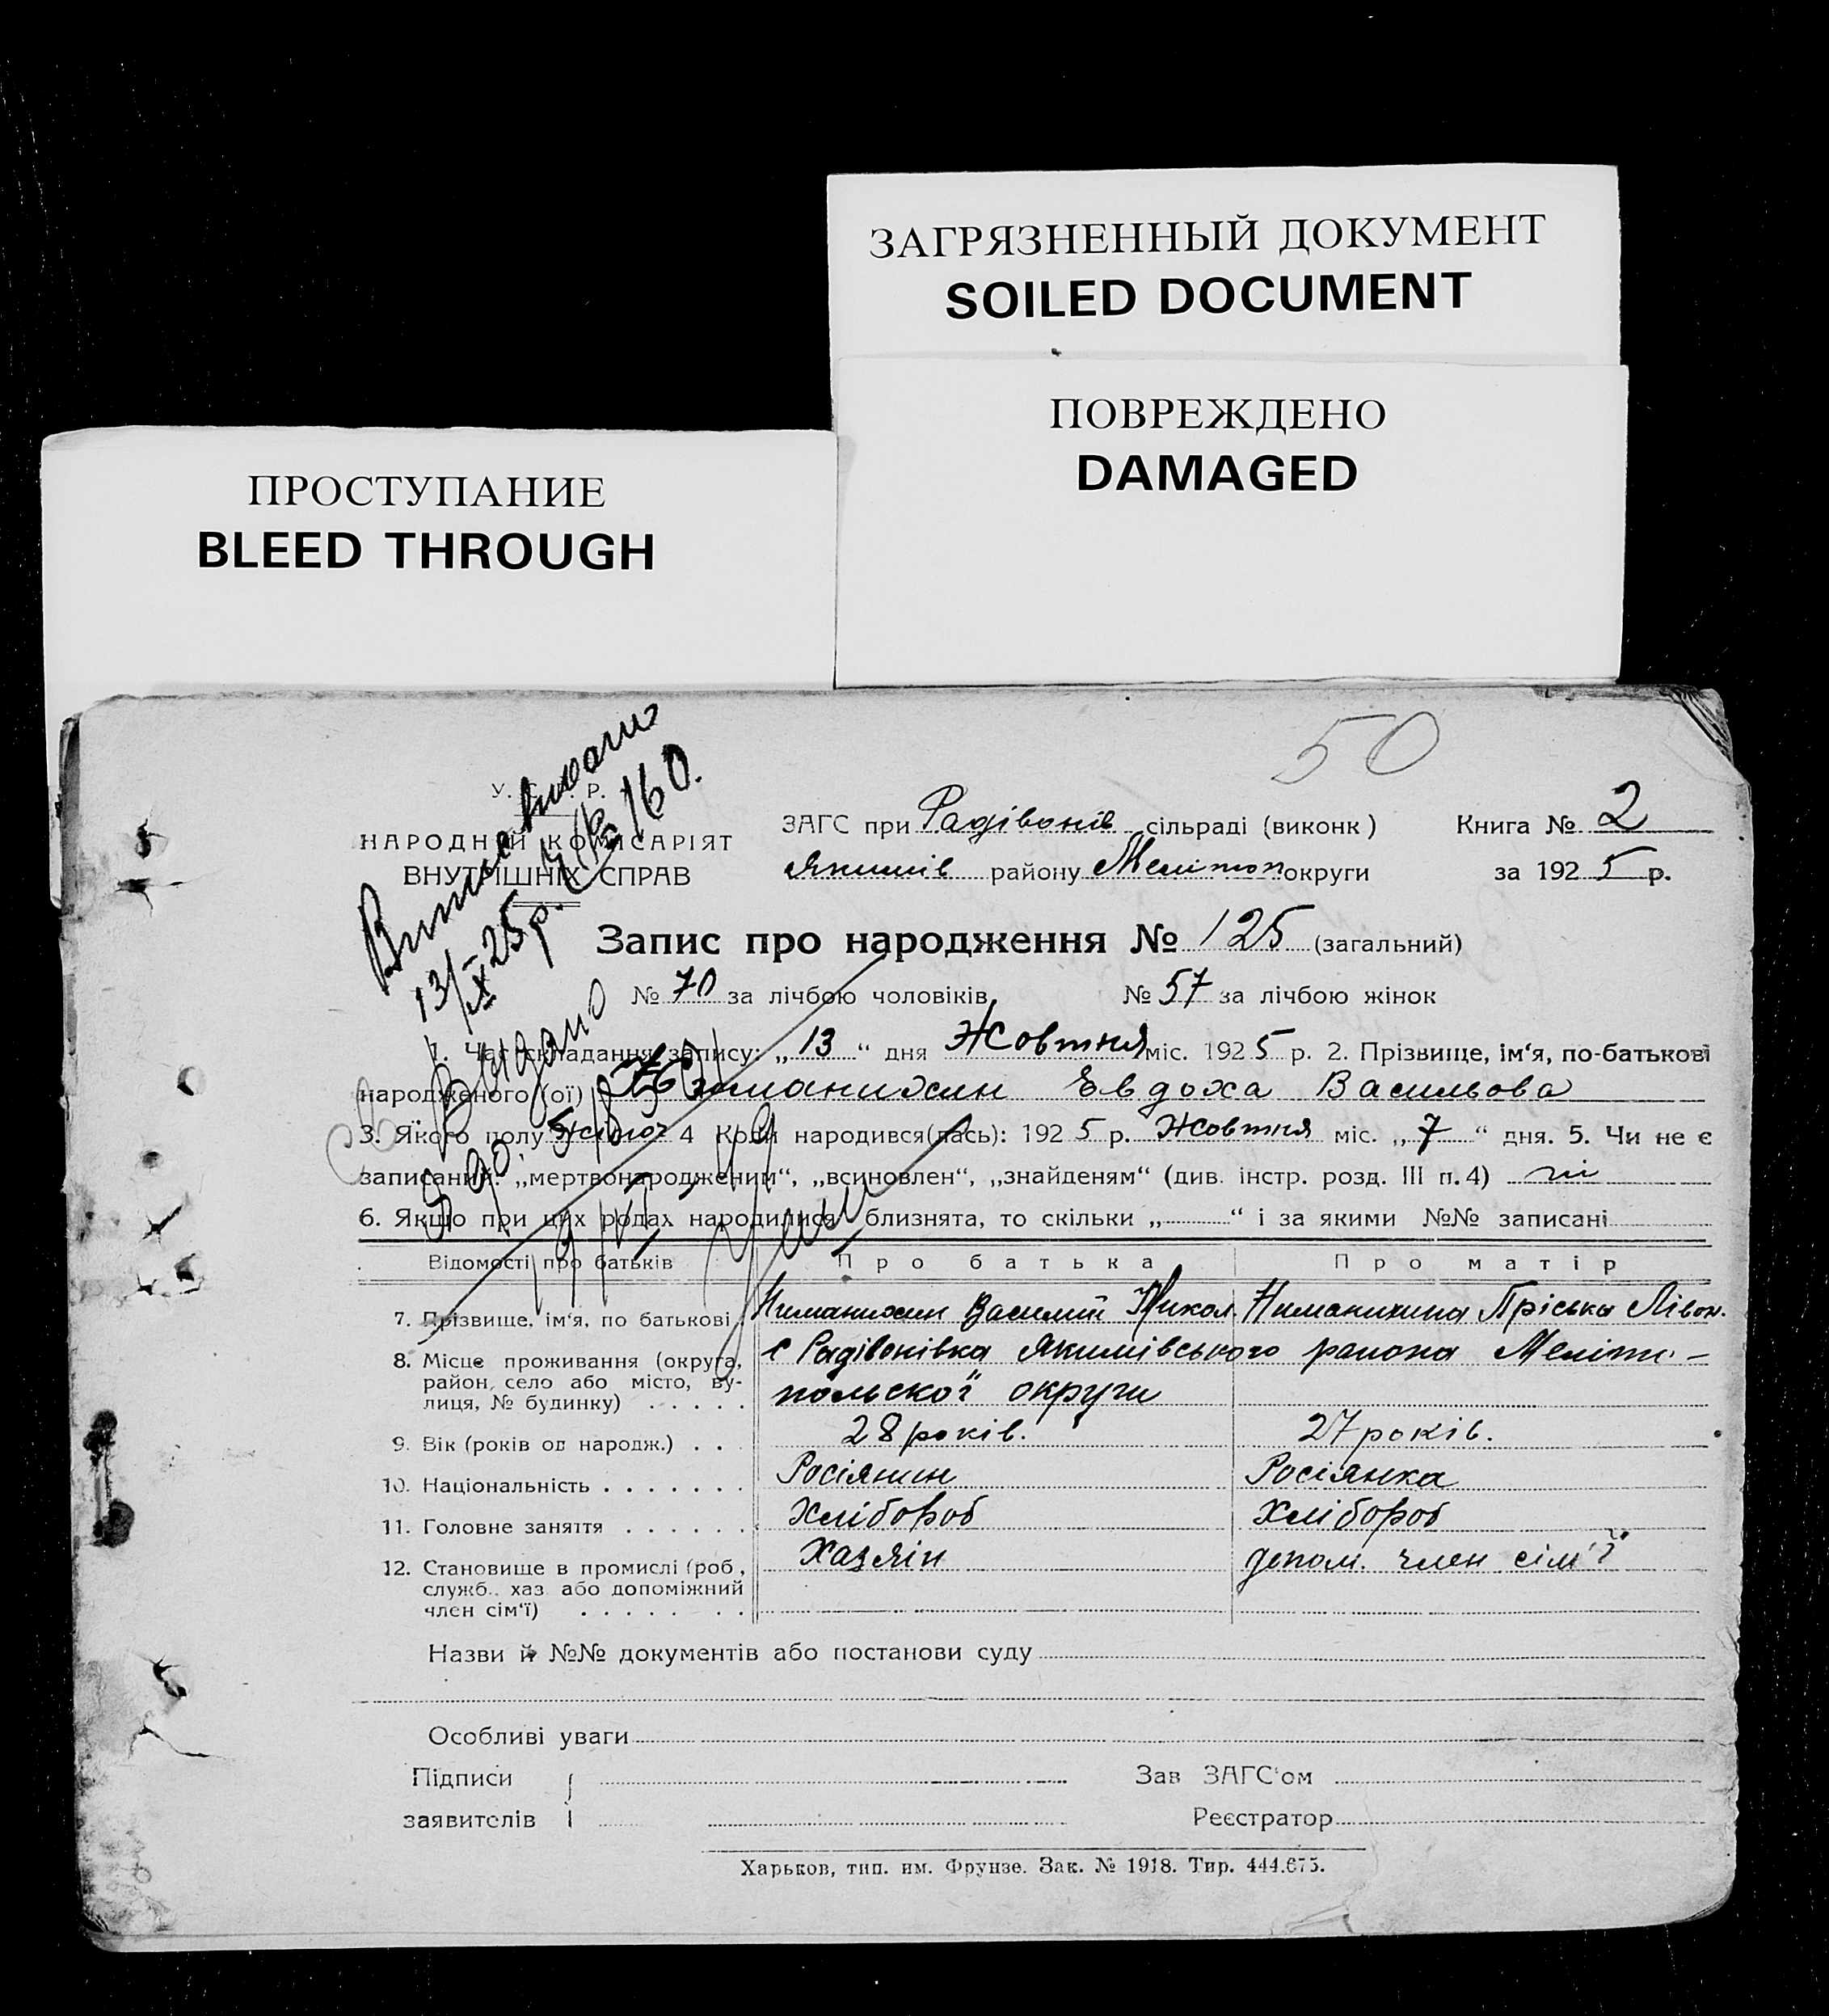 ЗАГРЯЗНЕННЫЙ ДОКУМЕНТ
SOILED DOCUMENT
ПОВРЕЖДЕНО
DAMAGED
ПРОСТУПАНИЕ
BLEED THROUGH
50
У. Р.
НАРОДНІЙ КОМІСАРІЯТ
ВНУТРІШНІХ СПРАВ
13/X-25р. № 160.
Видано
ЗАГС при Радівонів сільраді (виконк)
Якимів району Мелітоп округи
Книга № 2
за 1925 р.
Запис про народження № 125 (загальний)
№ 70 за лічбою чоловіків № 57 за лічбою жінок
1. Час складання запису: „13“ дня Жовтня міс. 1925 р. 2. Прізвище, ім‘я, по-батькові
народженого (ої) Евдоха Васильова
3. Якого полу жіноч 4 Коли народився(лась): 1925 р. Жовтня міс. „7“ дня. 5. Чи не є
записаний: „мертвонародженим“, „всиновлен“, „знайденям“ (див. інстр. розд. III п. 4) ні
6. Якщо при цих родах народилися близнята, то скільки „ “ і за якими №№ записані
Відомості про батьків Про батька Про матір
7. Прізвище, ім‘я, по батькові Василий Никол. Пріська Лівон.
8. Місце проживання (округа, район, село або місто, вулиця, № будинку) с Радівонівка Якимівського района Меліто-
польскої округи
9. Вік (років од народж.) 28 років. 27 років.
10. Національність Росіянин Росіянка
11. Головне заняття Хлібороб Хлібороб
12. Становище в промислі (роб, служб. хаз. або допоміжний член сім‘ї) Хазяін допом. член сім'ї
Назви й №№ документів або постанови суду
Особливі уваги
Підписи заявителів
Зав ЗАГС‘ом
Реєстратор
Харьков, тип. им. Фрунзе. Зак. № 1918. Тир. 444.675.